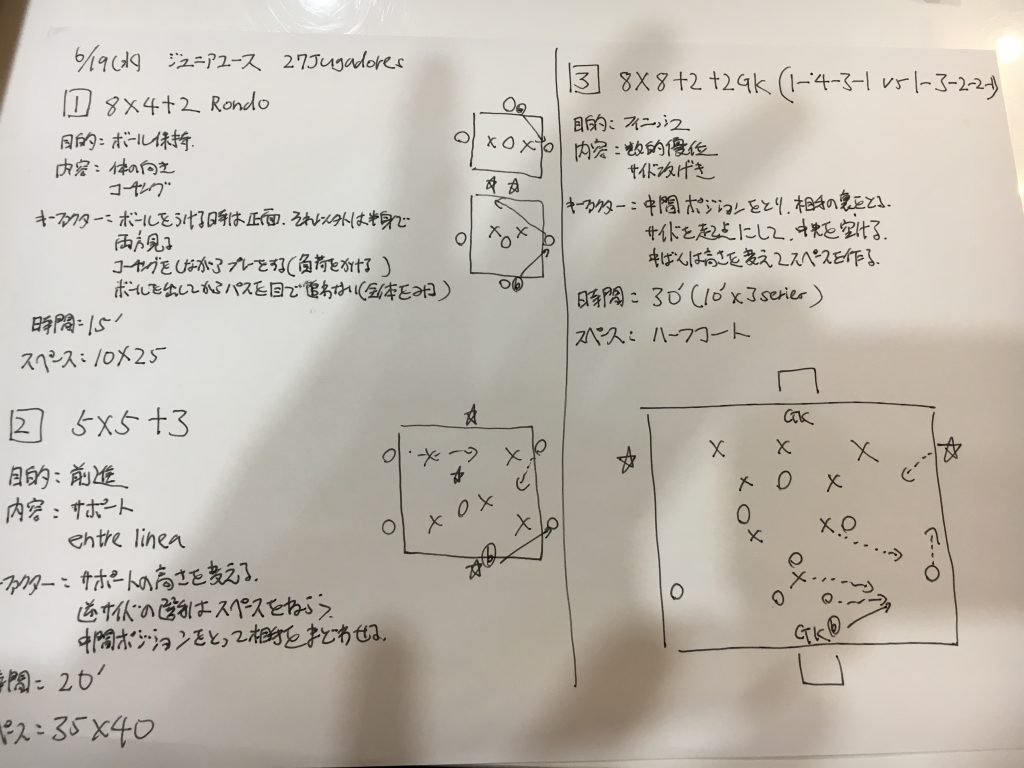 6/19(水) ジュニアユース 27Jugadores
1 8×4+2 Rondo
目的:ボール保持.
内容:体の向き
コーチング
キーファクター:ボールをうける時は正面.それ以外は半身で
両方見る
コーチングをしながらプレーをする(負荷をかける)
ボールを出してからパスを目で追わない(全体をみる)
時間:15'
スペース:10×25
2 5×5+3
目的:前進
内容:サポート
entre linea
ファクター:サポートの高さを変える.
逆サイドの選手はスペースをねらう
中間ポジションをとって相手をまどわせる.
時間=20'
ペース=35×40
3 8×8+2+2GK (1-4-3-1 vs 1-3-2-2-1)
目的:フィニッシュ
内容:数的優位
サイド攻げき
キーファクター:中間ポジションをとり、相手の裏をとる.
サイドを起点にして、中央を空ける.
中ばんは高さを変えてスペースを作る.
時間=30'(10'×3serier)
スペース:ハーフコート
GK
GK